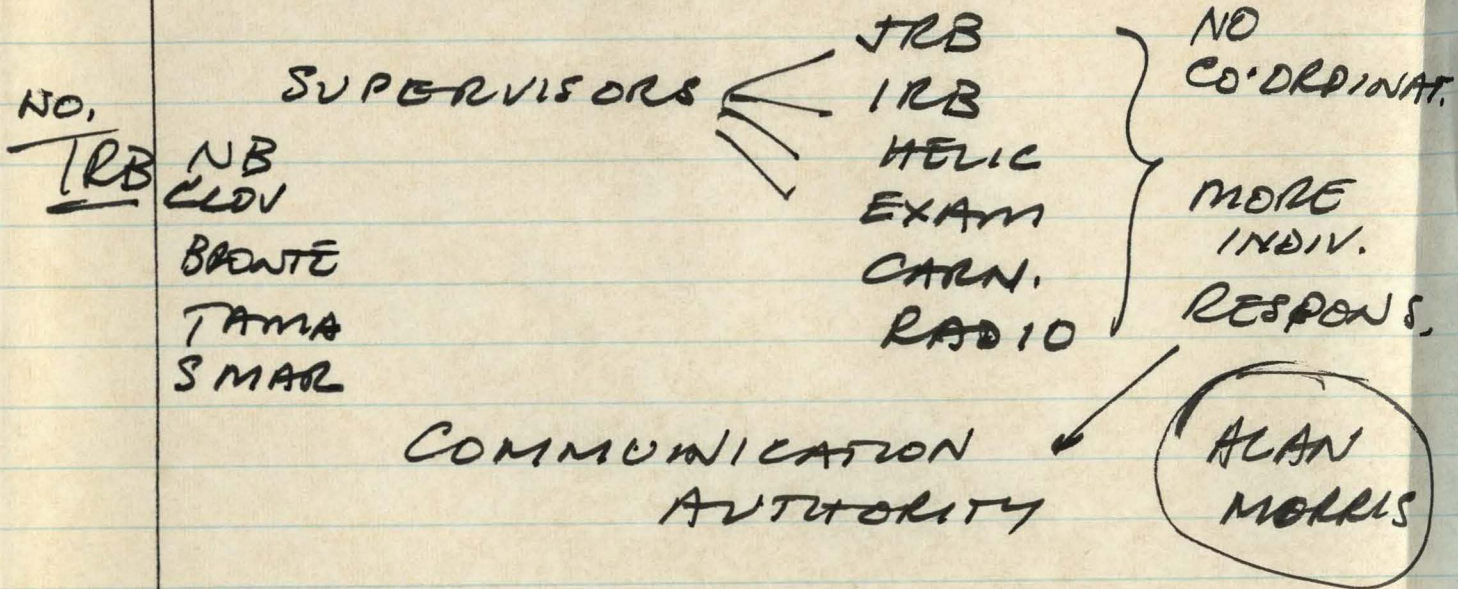 NO.
IRB
NB
CLOV
BRONTE
TAMA
S MAR
SUPERVISORS
JRB
IRB
HELIC
EXAM
CARN.
RADIO
NO
CO-ORDINAT.
MORE
INDIV.
RESPONS.
COMMUNICATION
AUTHORITY
ALAN
MORRIS